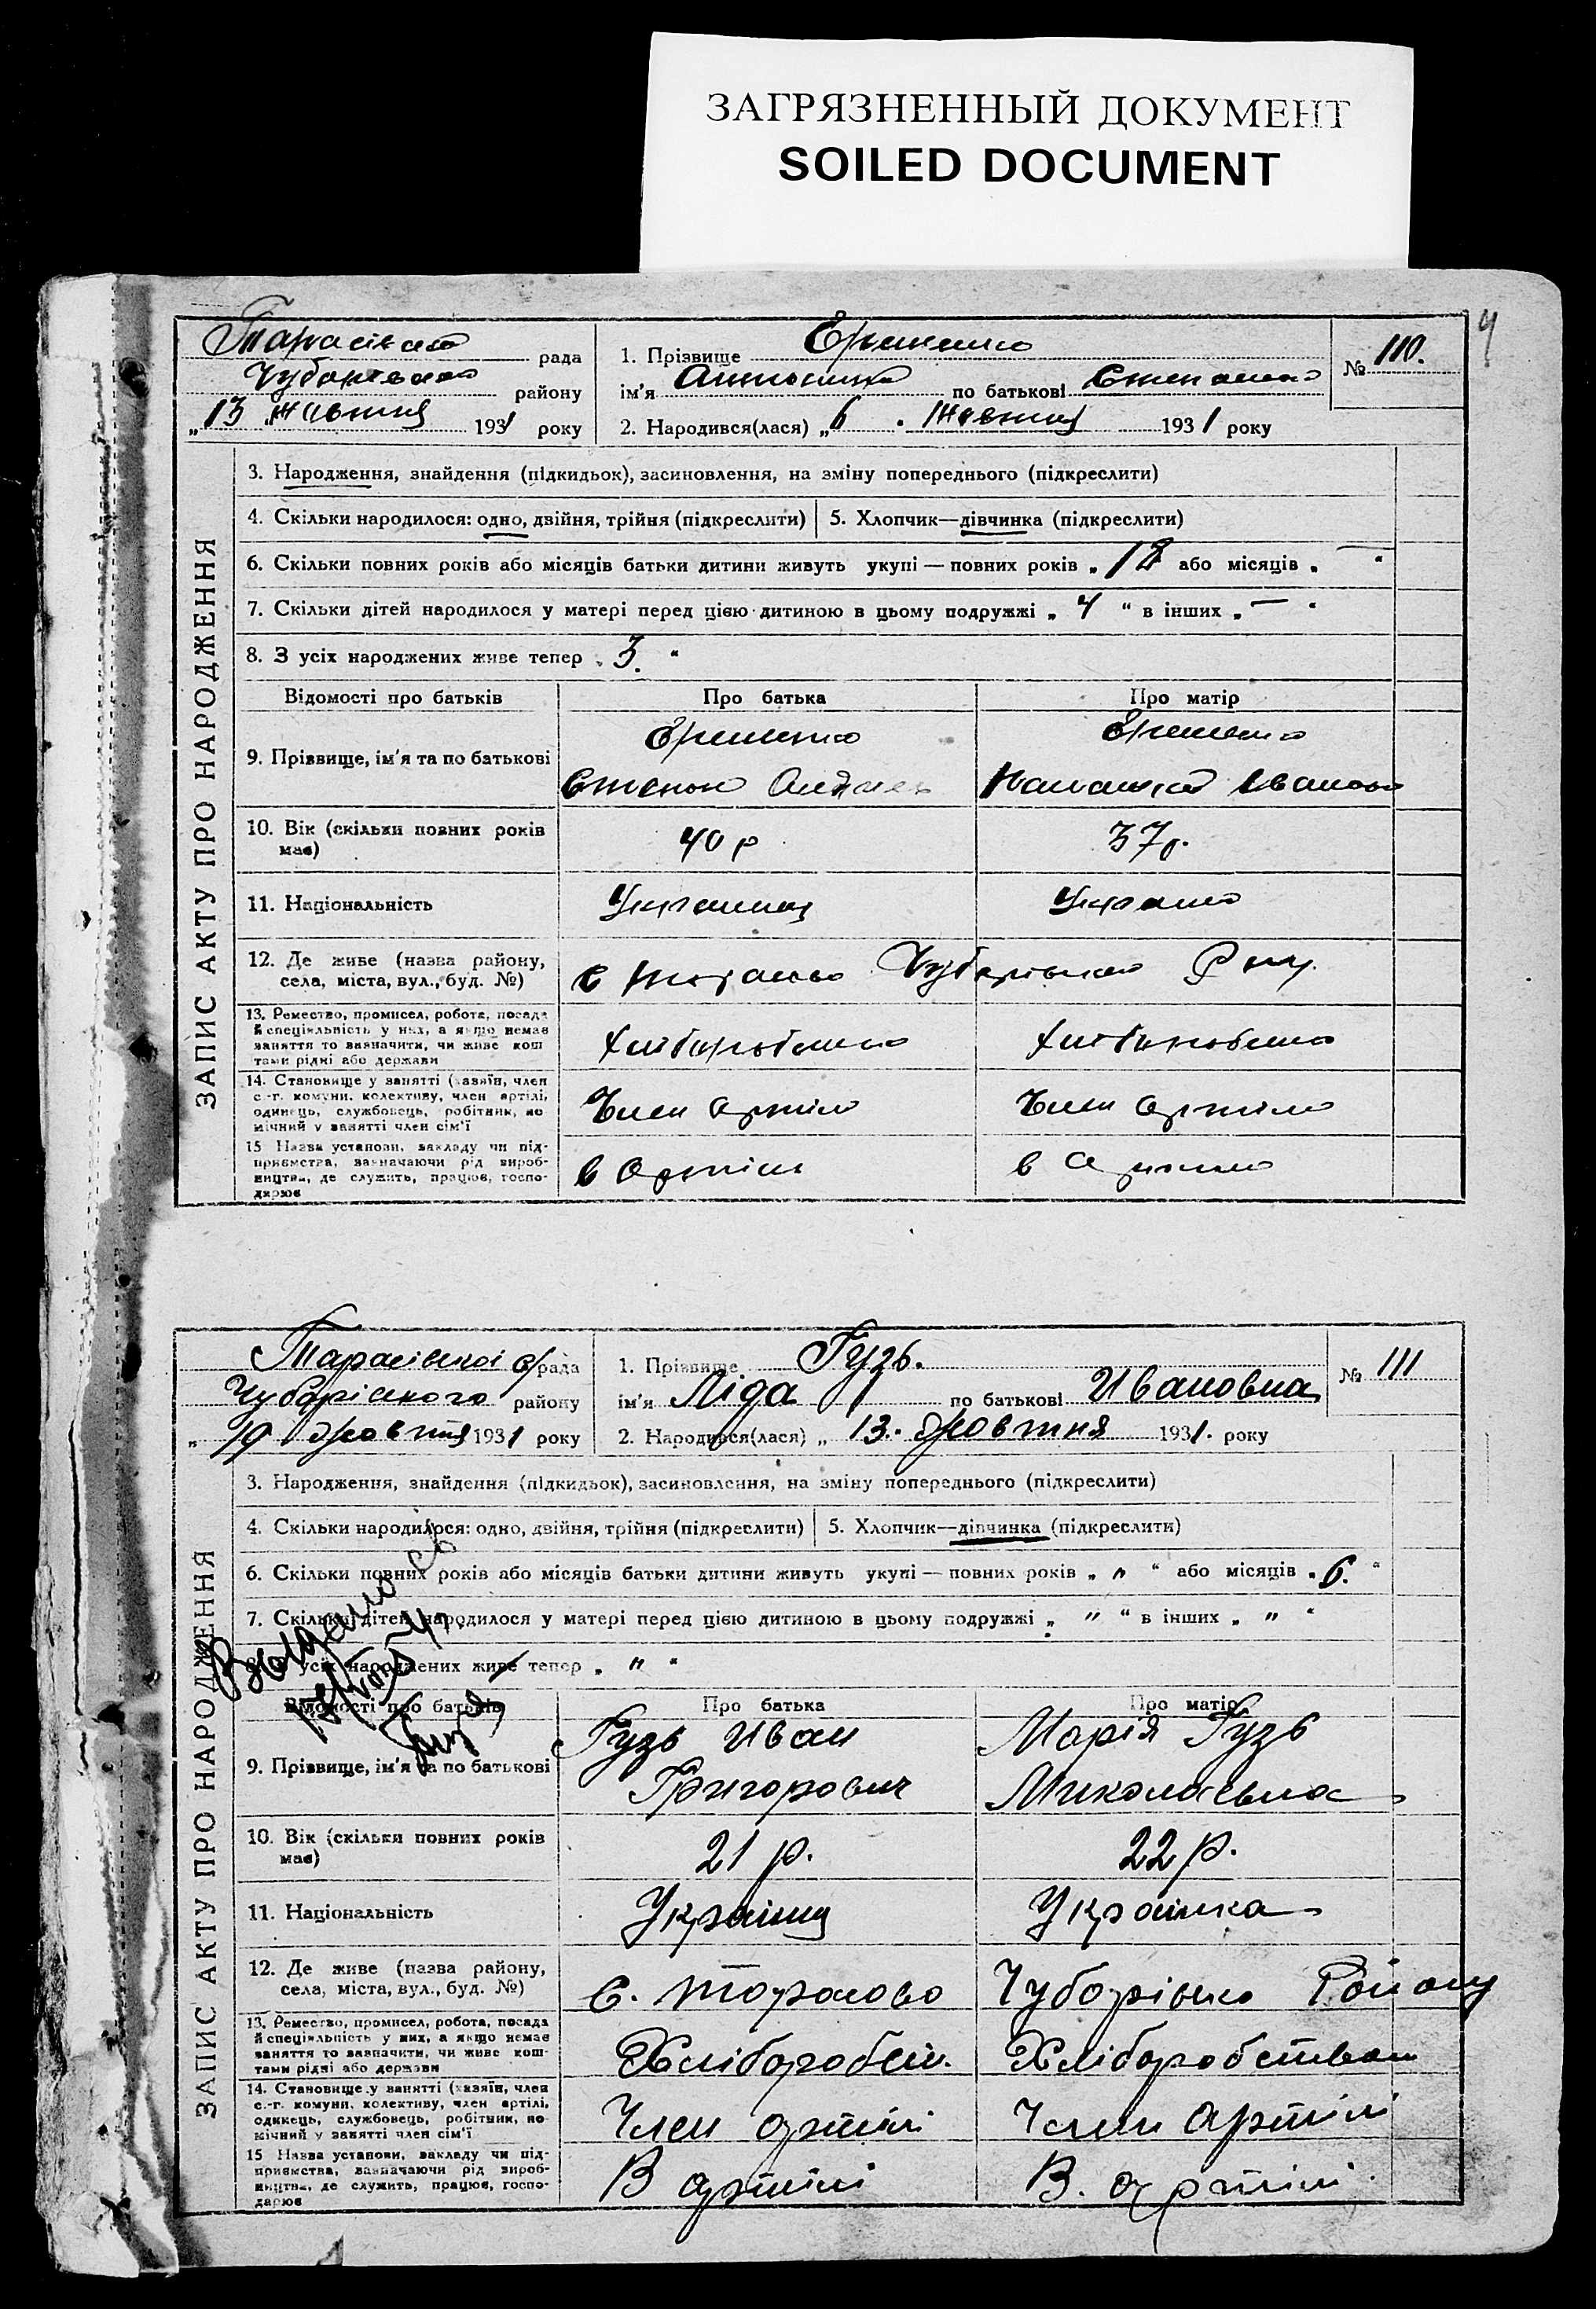 ЗАГРЯЗНЕННЫЙ ДОКУМЕНТ
SOILED DOCUMENT
4
рада
району
„13 жовтня 1931 року
1. Прізвище
ім'я по батькові
2. Народився(лася) „6 жовтня 1931 року
№ 110.
ЗАПИС АКТУ ПРО НАРОДЖЕННЯ
3. Народження, знайдення (підкидьок), засиновлення, на зміну попереднього (підкреслити)
4. Скільки народилося: одно, двійня, трійня (підкреслити)
5. Хлопчик—дівчинка (підкреслити)
6. Скільки повних років або місяців батьки дитини живуть укупі — повних років „ 18 або місяців „ — “
7. Скільки дітей народилося у матері перед цією дитиною в цьому подружжі „ 4 “ в інших „ — “
8. З усіх народжених живе тепер „ 3. “
Відомості про батьків
Про батька
Про матір
9. Прізвище, ім'я та по батькові
10. Вік (скільки повних років має)
40 р
37 р.
11. Національність
12. Де живе (назва району, села, міста, вул., буд. №)
13. Ремество, промисел, робота, посада й спеціяльність у них, а якщо немає заняття то зазначити, чи живе коштами рідні або держави
14. Становище у занятті (хазяїн, член с.-г. комуни, колективу, член артілі, одинець, службовець, робітник, помічний у занятті член сім'ї
Член артілі
Член артілі
15 Назва установи, закладу чи підприємства, зазначаючи рід виробництва, де служить, працює, господарює
в артілі
в артілі
Тарасівської с/рада
Чубарівського району
„ 19 жовтня 1931 року
1. Прізвище Гузь.
ім'я Ліда по батькові Ивановна
2. Народився(лася) „ 13. жовтня 1931. року
№ 111
ЗАПИС АКТУ ПРО НАРОДЖЕННЯ
3. Народження, знайдення (підкидьок), засиновлення, на зміну попереднього (підкреслити)
4. Скільки народилося: одно, двійня, трійня (підкреслити)
5. Хлопчик—дівчинка (підкреслити)
6. Скільки повних років або місяців батьки дитини живуть укупі — повних років „ " “ або місяців „ 6. “
7. Скільки дітей народилося у матері перед цією дитиною в цьому подружжі „ " “ в інших „ " “
8. З усіх народжених живе тепер „ " “
Відомості про батьків
Про батька
Про матір
9. Прізвище, ім'я та по батькові
Гузь Иван
Григорович
Марія Гузь
Миколаєвна
10. Вік (скільки повних років має)
21 р.
22 р.
11. Національність
Українец
Українка
12. Де живе (назва району, села, міста, вул., буд. №)
С. Тарасово Чубарівсько Району
13. Ремество, промисел, робота, посада й спеціяльність у них, а якщо немає заняття то зазначити, чи живе коштами рідні або держави
Хліборобств.
Хліборобством
14. Становище у занятті (хазяїн, член с.-г. комуни, колективу, член артілі, одинець, службовець, робітник, помічний у занятті член сім'ї
Член артілі
Член артілі
15 Назва установи, закладу чи підприємства, зазначаючи рід виробництва, де служить, працює, господарює
В артілі
В. артілі